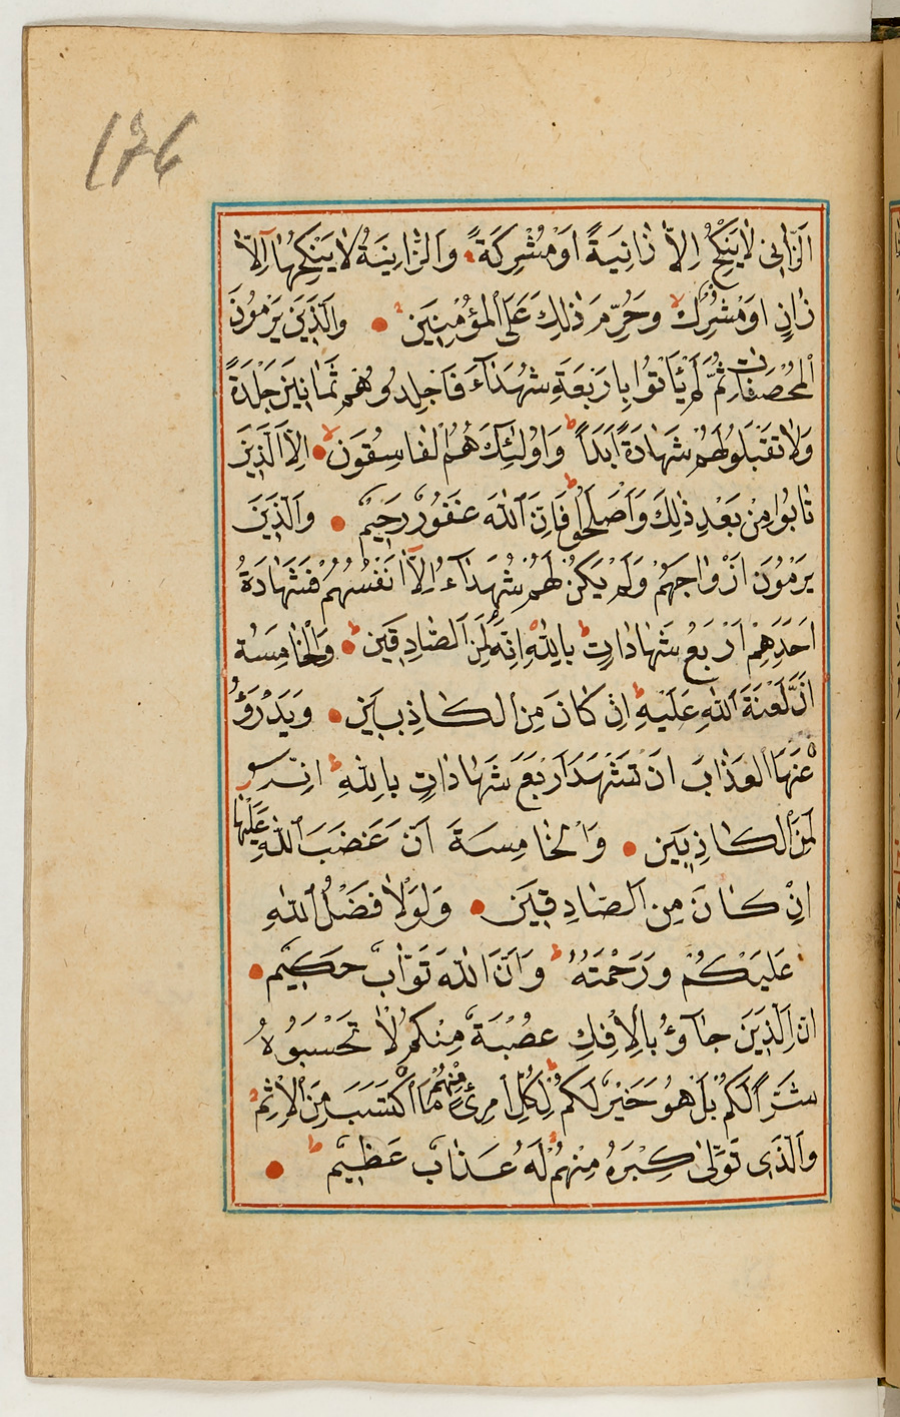 176
اَلزّٰانٖى لٰا يَنْكِحُ اِلاّٰ زٰانِيَةً اَوْ مُشْرِكَةً وَالزّٰانِيَةُ لٰا يَنْكِحُهٰا اِلاّٰ
زٰانٍ اَوْ مُشْرِكٌ وَحُرِّمَ ذٰلِكَ عَلَى الْمُؤْمِنٖينَ وَالَّذٖينَ يَرْمُونَ
الْمُحْصَنٰاتِ ثُمَّ لَمْ يَأْتُوا بِاَرْبَعَةِ شُهَدٰٓاءَ فَاجْلِدُوهُمْ ثَمٰانٖينَ جَلْدَةً
وَلٰا تَقْبَلُوا لَهُمْ شَهٰادَةً اَبَداً وَاُولٰئِكَ هُمُ الْفٰاسِقُونَ اِلاَّ الَّذٖينَ
تٰابُوا مِنْ بَعْدِ ذٰلِكَ وَاَصْلَحُوا فَاِنَّ اللّٰهَ غَفُورٌ رَحٖيمٌ وَالَّذٖينَ
يَرْمُونَ اَزْوٰاجَهُمْ وَلَمْ يَكُنْ لَهُمْ شُهَدٰٓاءُ اِلاّٰ اَنْفُسُهُمْ فَشَهٰادَةُ
اَحَدِهِمْ اَرْبَعُ شَهٰادٰاتٍ بِاللّٰهِ اِنَّهُ لَمِنَ الصّٰادِقٖينَ وَالْخٰامِسَةُ
اَنَّ لَعْنَةَ اللّٰهِ عَلَيْهِ اِنْ كٰانَ مِنَ الْكٰاذِبٖينَ وَيَدْرَؤُ
عَنْهَا الْعَذٰابَ اَنْ تَشْهَدَ اَرْبَعَ شَهٰادٰاتٍ بِاللّٰهِ اِنَّهُ
لَمِنَ الْكٰاذِبٖينَ وَالْخٰامِسَةَ اَنَّ غَضَبَ اللّٰهِ عَلَيْهٰا
اِنْ كٰانَ مِنَ الصّٰادِقٖينَ وَلَوْلٰا فَضْلُ اللّٰهِ
عَلَيْكُمْ وَرَحْمَتُهُ وَاَنَّ اللّٰهَ تَوّٰابٌ حَكٖيمٌ
اِنَّ الَّذٖينَ جٰاؤُ بِالْاِفْكِ عُصْبَةٌ مِنْكُمْ لٰا تَحْسَبُوهُ
شَرًّا لَكُمْ بَلْ هُوَ خَيْرٌ لَكُمْ لِكُلِّ امْرِئٍ مِنْهُمْ مَا اكْتَسَبَ مِنَ الْاِثْمِ
وَالَّذٖى تَوَلّٰى كِبْرَهُ مِنْهُمْ لَهُ عَذٰابٌ عَظٖيمٌ